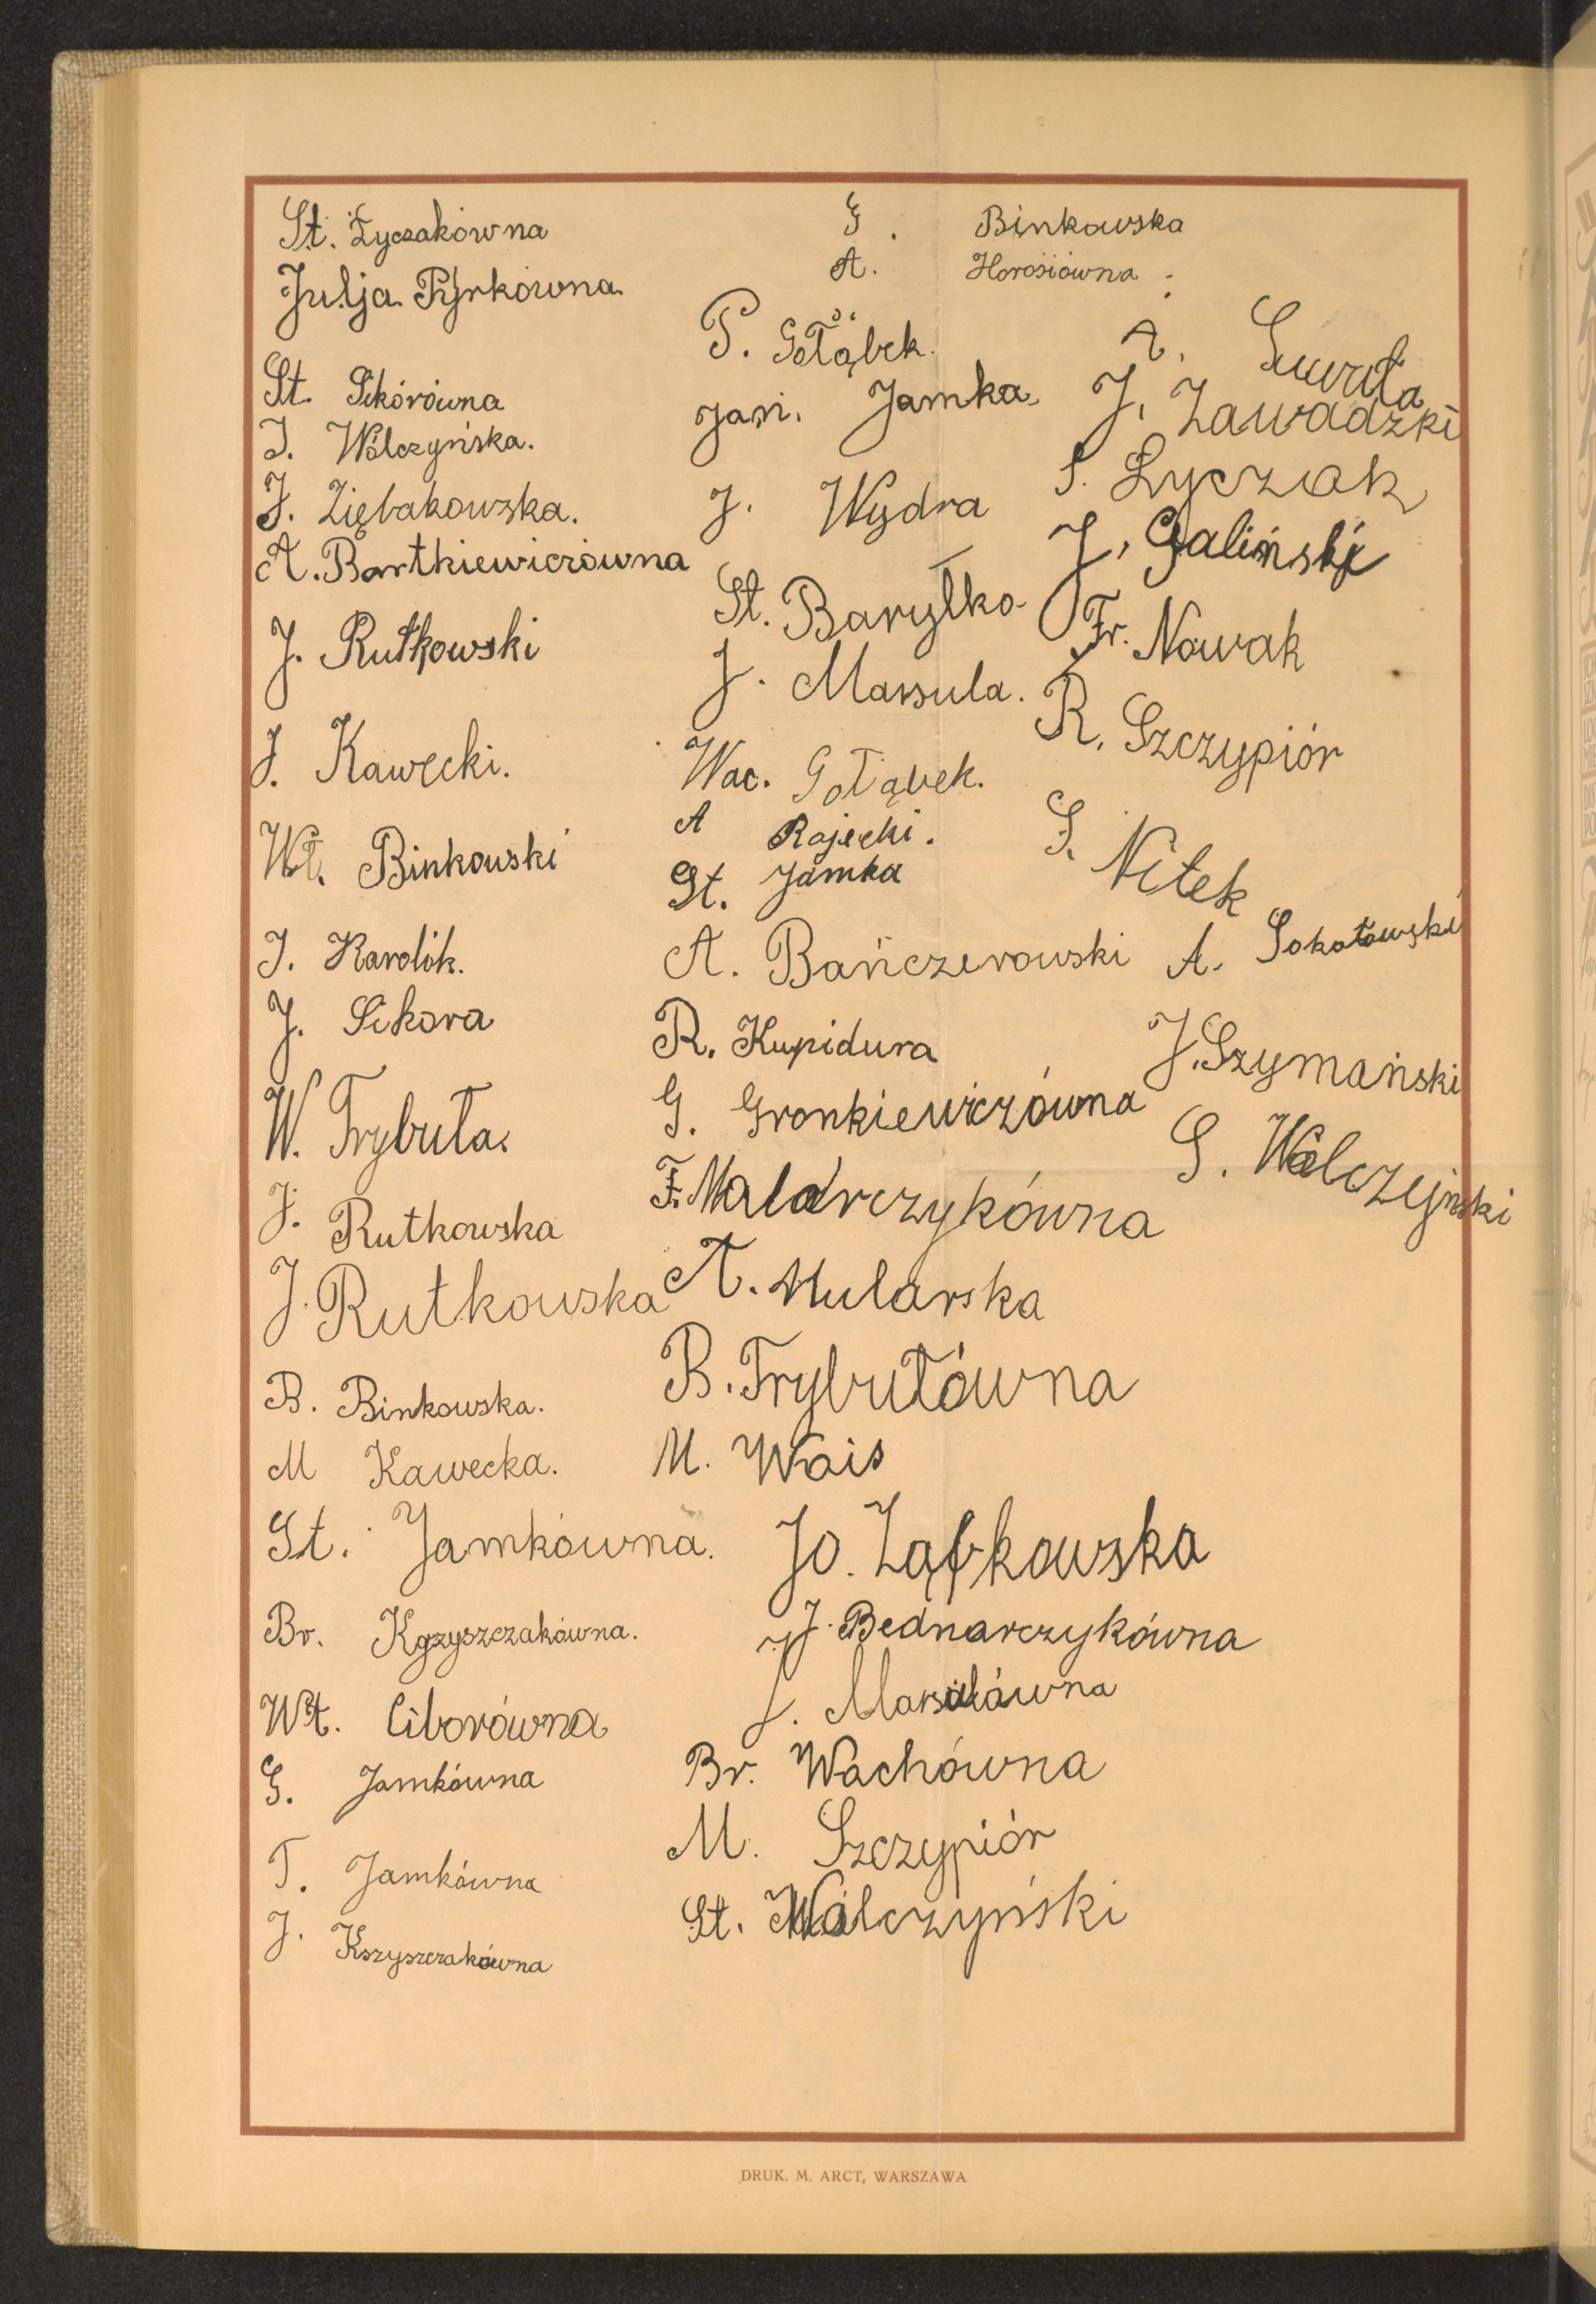 St. Życzakówna
Julja Pyrkówna
St. Sikórówna
J. Wólczyńska.
J. Ziębakowska.
A. Bartkiewiczówna
J. Rutkowski
J. Kawecki.
Wł. Binkowski
J. Karolik.
J. Sikora
W. Trybuła.
J. Rutkowska
J. Rutkowska
B. Binkowska.
M Kawecka.
St. Jamkówna.
Br. Krzyszczakówna.
Wł. Ciborówna
G. Jamkówna
T. Jamkówna
J. Kszyszczakówna
G. Binkowska
A. Horosiówna
P. Gołąbek.
Jan. Jamka.
J. Wydra
St. Baryłko
J. Marsula.
Wac. Gołąbek.
A Rajecki.
St. Jamka
A. Bańczerowski
R. Kupidura
G. Gronkiewiczówna
F. Malarczykówna
A. Mularska
B. Trybułówna
M. Wais
Jo. Ząbkowska
J. Bednarczykówna
J. Marsulówna
Br. Wachówna
M. Szczypiór
St. Wólczyński
A.
J. Zawadzki
S. Łyczak
J. Galiński
Fr. Nowak
R. Szczypiór
S. Nitek
A. Sokołowski
J. Szymański
S. Wólczyjnski
DRUK. M. ARCT, WARSZAWA